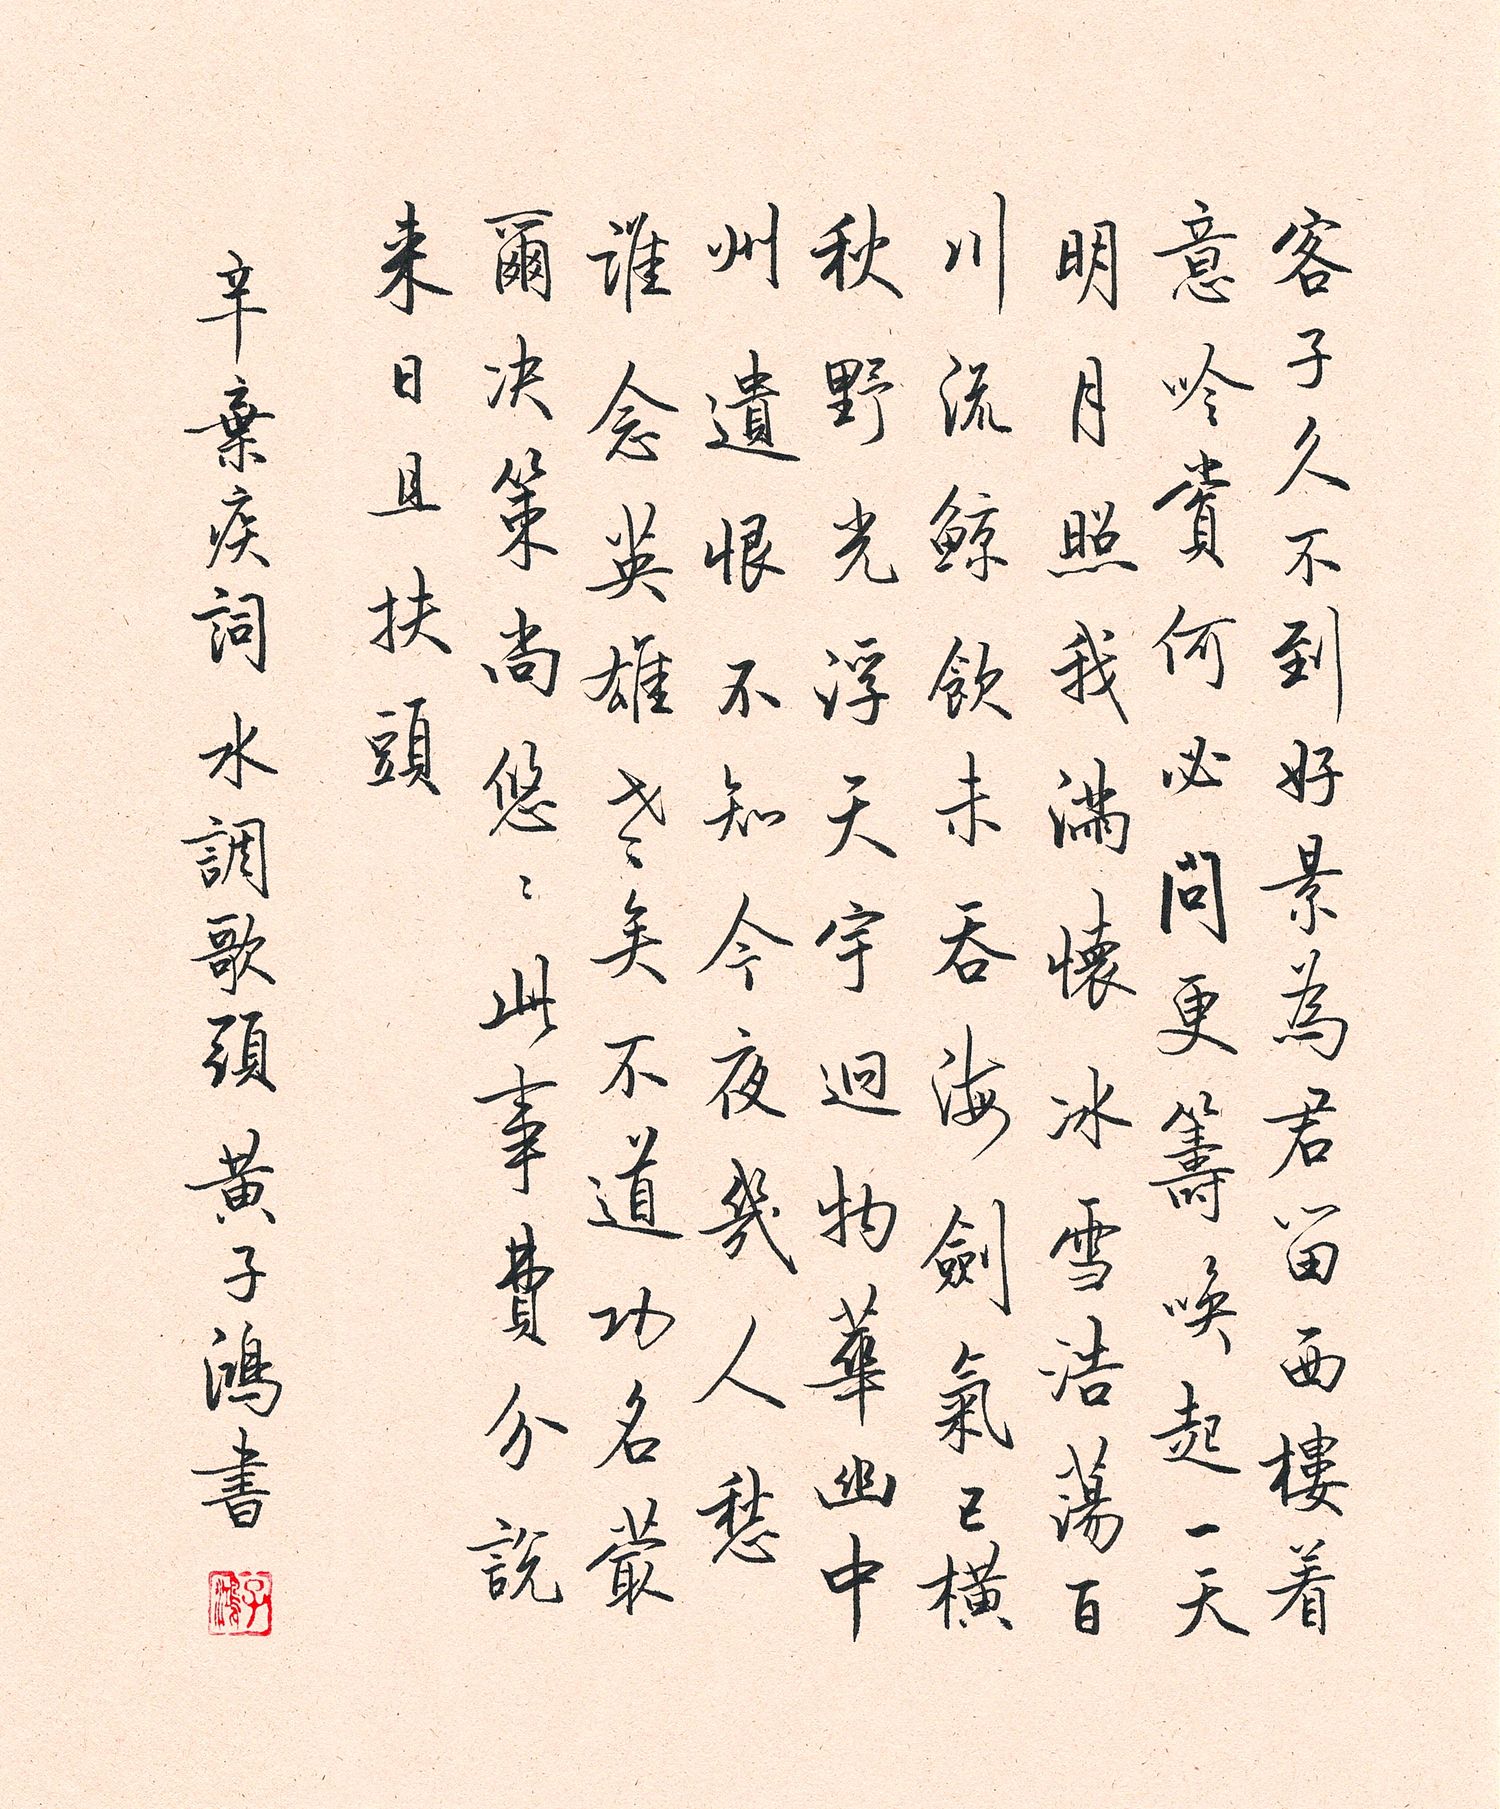 客子久不到好景為君留西樓着
意吟賞何必問更籌喚起一天
明月照我滿懷冰雪浩蕩百
川流鯨飲未吞海劍氣已橫
秋野光浮天宇迥物華幽中
州遺恨不知今夜幾人愁
誰念英雄老矣不道功名蕞
爾決策尚悠〻此事費分說
来日且扶頭
辛棄疾詞水調歌頭黃子鴻書
子鴻